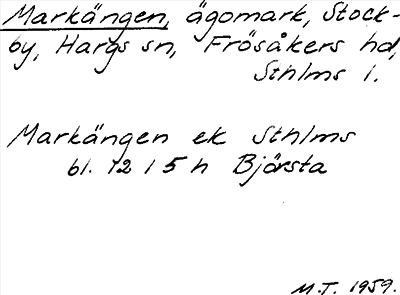 Markängen, ägomark, Stock-
by, Hargs sn, Frösåkers hd,
Sthlms l.
Markängen ek Sthlms
bl. 12 1 5 h Björsta
M.T. 1959.